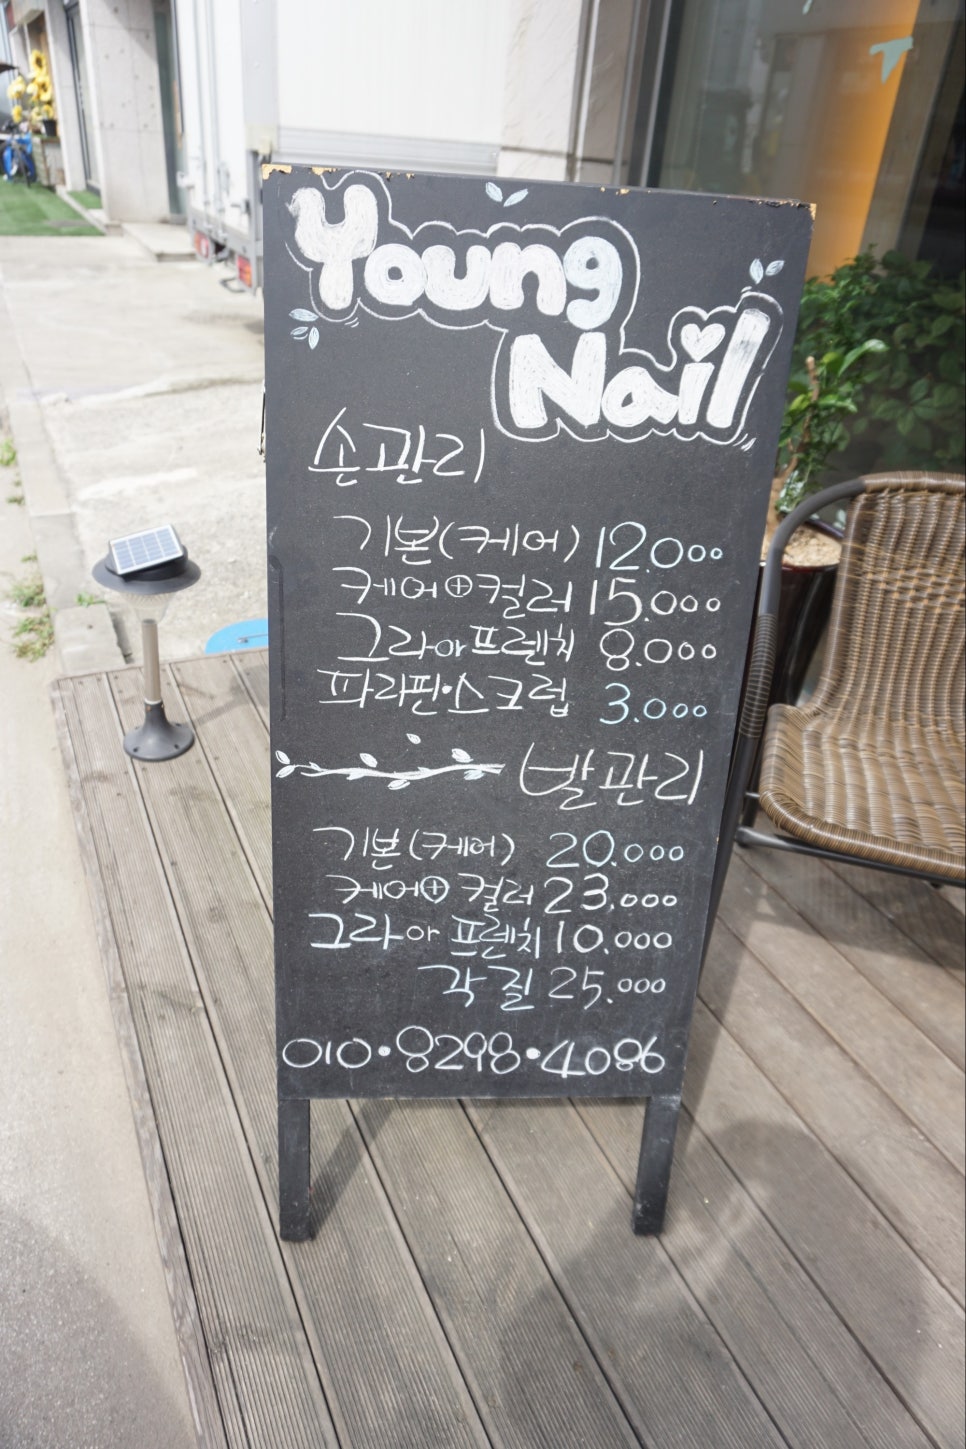 Young
Nail
손관리
기본(케어) 12.000
케어⊕컬러 15.000
그라아프렌치 8.000
파라핀·스크럽 3.000
발관리
기본(케어) 20.000
케어⊕ 컬러 23.000
그라아 프렌치 10.000
각질 25.000
010·8298·4086